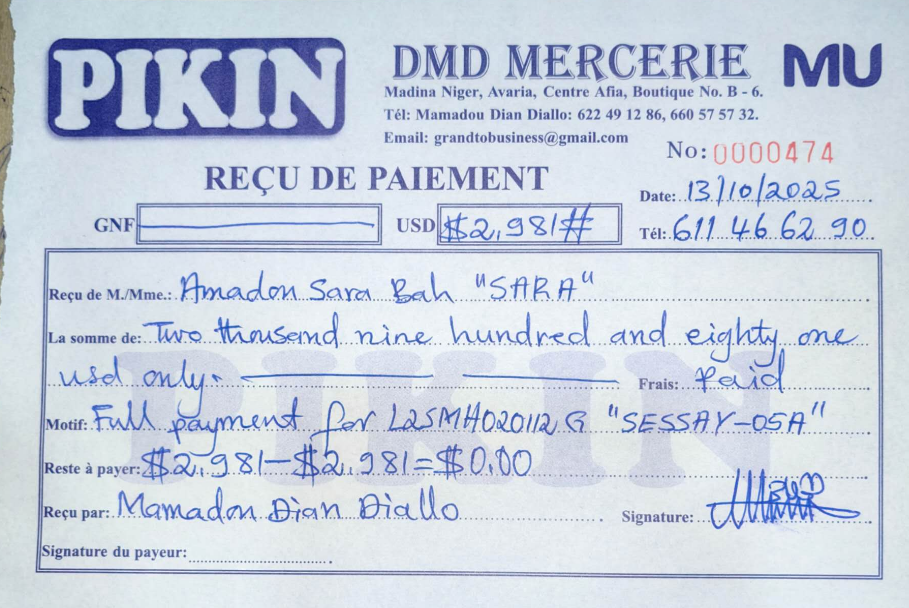 PIKIN
DMD MERCERIE
MU
Madina Niger, Avaria, Centre Afia, Boutique No. B - 6.
Tél: Mamadou Dian Diallo: 622 49 12 86, 660 57 57 32.
Email: grandtobusiness@gmail.com
No: 0000474
REÇU DE PAIEMENT
Date: 13/10/2025
GNF
USD $2,981#
Tél: 611 46 62 90
Reçu de M./Mme.: Amadou Sara Bah "SARA"
La somme de: Two thousand nine hundred and eighty one
usd only. Frais: Paid
Motif: Full payment for L2SMH020112G "SESSAY-OSA"
Reste à payer: $2,981-$2,981=$0.00
Reçu par: Mamadou Dian Diallo Signature:
Signature du payeur:
PIKIN